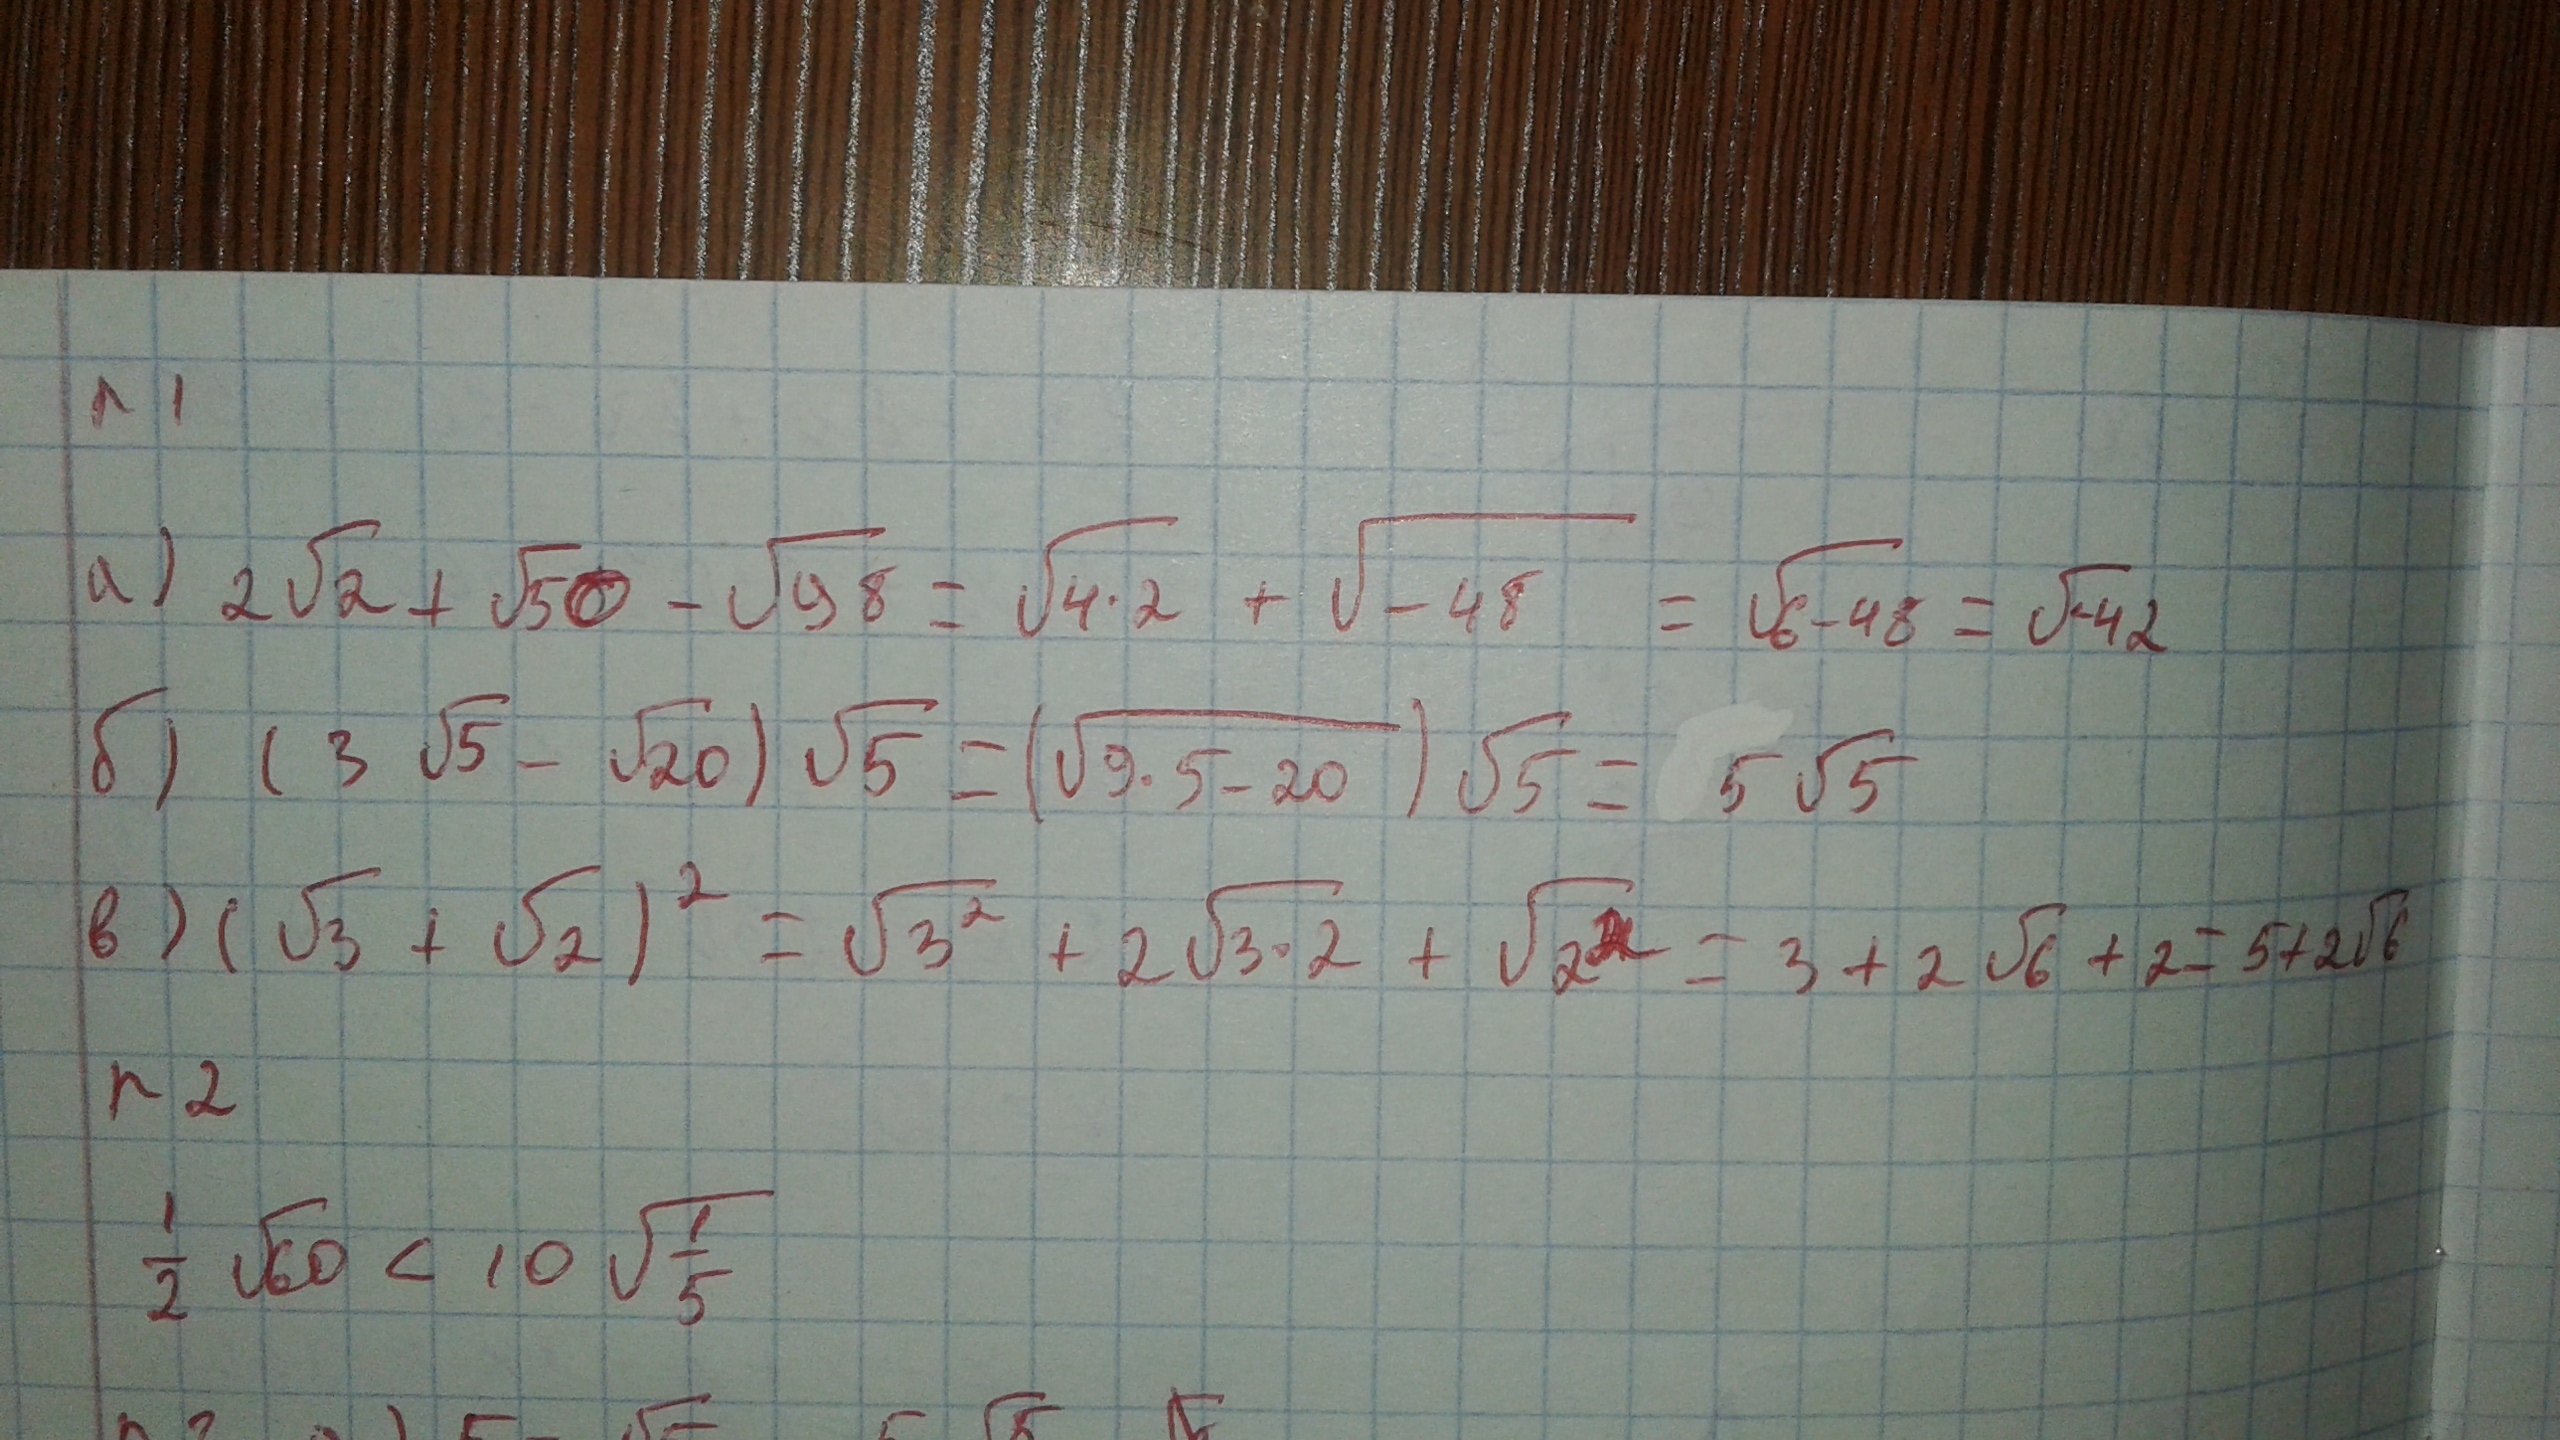 n 1
а) 2√2 + √50 - √98 = √4·2 + √-48 = √6-48 = √-42
б) (3 √5 - √20) √5 = (√9·5-20) √5 = 5√5
в) (√3 + √2)² = √3² + 2√3·2 + √2² = 3 + 2√6 + 2 = 5+2√6
n 2
1/2 √60 < 10 √1/5